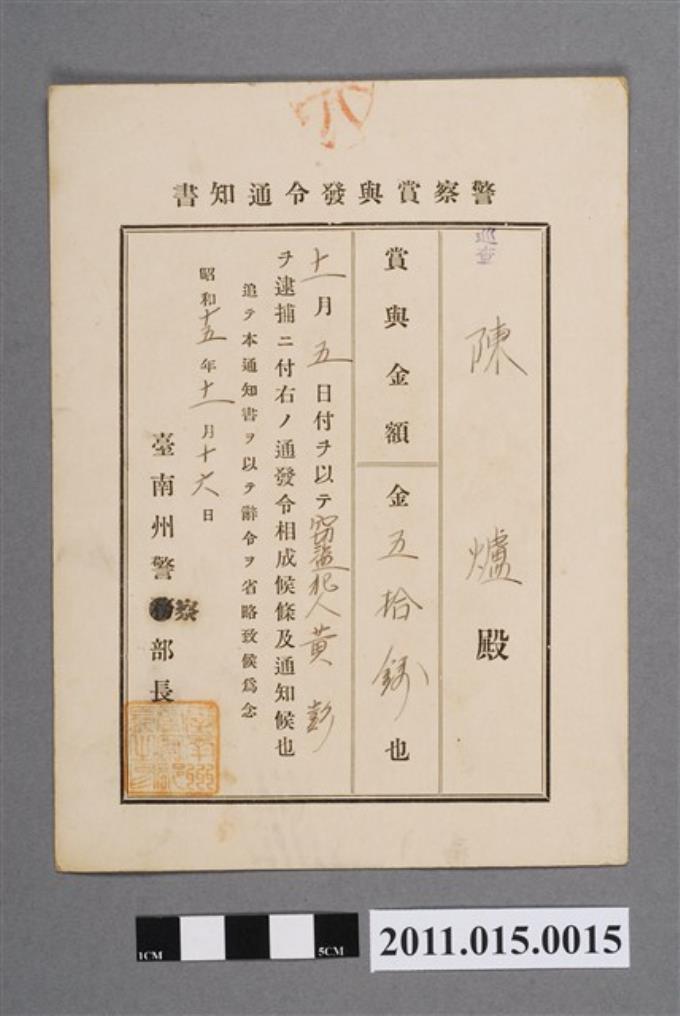 警察賞與發令通知書
巡査
陳爐殿
賞與金額
金五拾錢也
十一月五日付ヲ以テ窃盜犯人黃彭
ヲ逮捕ニ付右ノ通發令相成候條及通知候也
追テ本通知書ヲ以テ辭令ヲ省略致候爲念
昭和十五年十一月十六日
臺南州警察部長
1CM
5CM
2011.015.0015